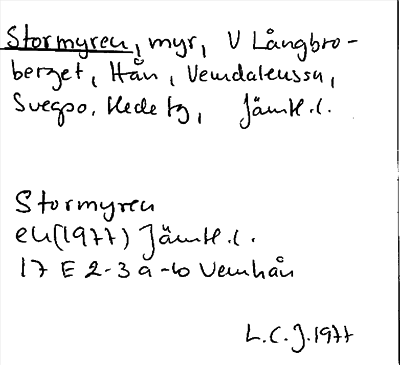 Stormyren, myr, V Långbro-
berget, Hån, Vemdalens sn,
Svegs o. Hede tg, Jämtl. l.
Stormyren
ek (1977) Jämtl. l.
17 E 2-3 a-b Vemhån
L.C.J. 1977